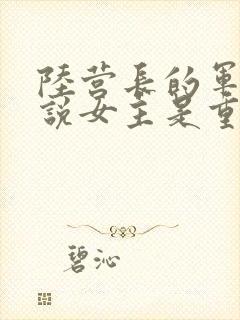 陸营長的軍
說女主是重
碧沁